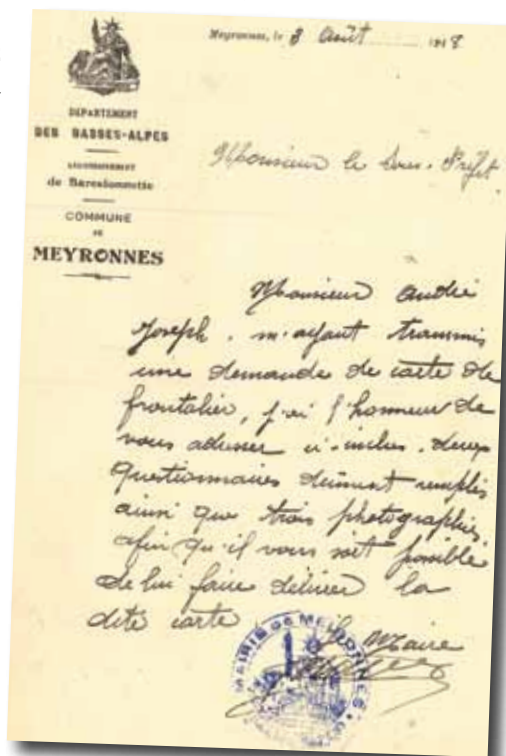 Meyronnes, le 3 Août 1918
DÉPARTEMENT
DES BASSES-ALPES
ARRONDISSEMENT
de Barcelonnette
COMMUNE
DE
MEYRONNES
Monsieur le Sous-Préfet.
Monsieur André
Joseph. m'ayant transmis
une demande de carte de
frontalier, j'ai l'honneur de
vous adresser ci-inclus. deux
questionnaires dûment remplis
ainsi que trois photographies,
afin qu'il vous soit possible
de lui faire délivrer la
dite carte
Le Maire
MAIRIE DE MEYRONNES